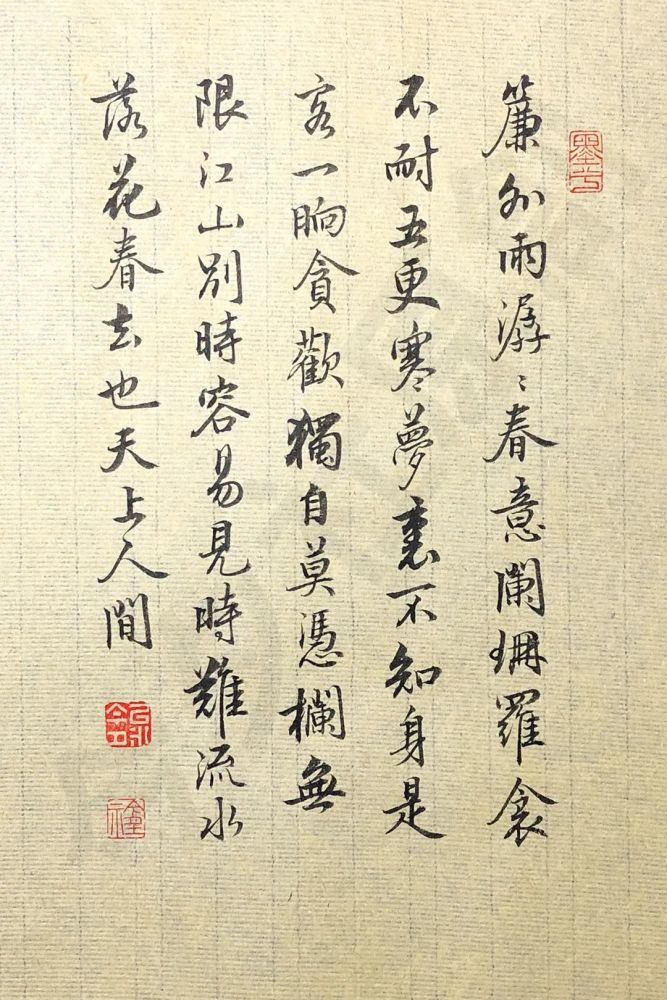 簾外雨潺〻春意闌珊羅衾
不耐五更寒夢裏不知身是
客一晌貪歡獨自莫憑欄無
限江山別時容易見時難流水
落花春去也天上人間